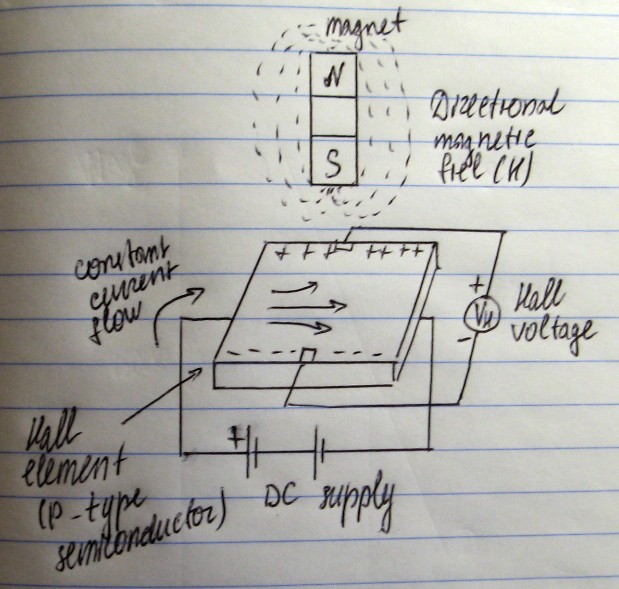 magnet
N
S
Directional
magnetic
fiel (H)
constant
current
flow
+ + + + + + +
- - - - - -
+
VH
-
Hall
voltage
Hall
element
(P-type
semiconductor)
+
DC supply